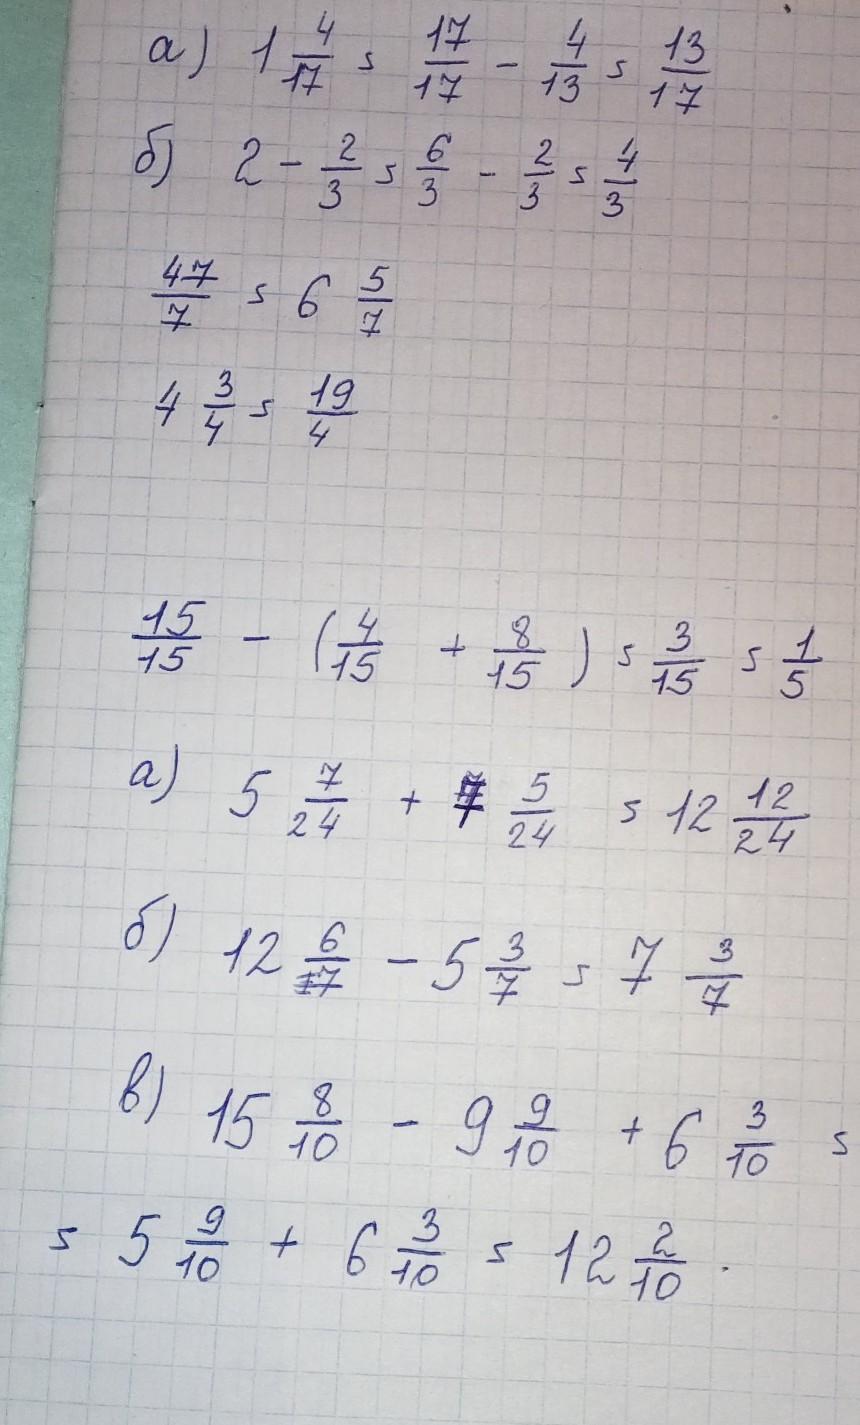 а) 1 4/17 = 17/17 - 4/13 = 13/17
б) 2 - 2/3 = 6/3 - 2/3 = 4/3
47/7 = 6 5/7
4 3/4 = 19/4
15/15 - (4/15 + 8/15) = 3/15 = 1/5
а) 5 7/24 + 7 5/24 = 12 12/24
б) 12 6/7 - 5 3/7 = 7 3/7
в) 15 8/10 - 9 9/10 + 6 3/10 =
= 5 9/10 + 6 3/10 = 12 2/10.